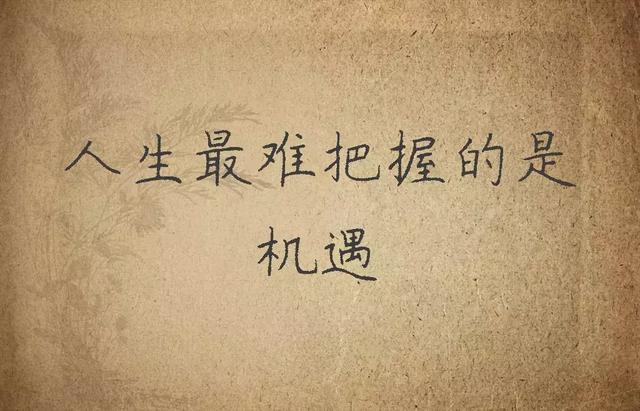 人生最难把握的是
机遇